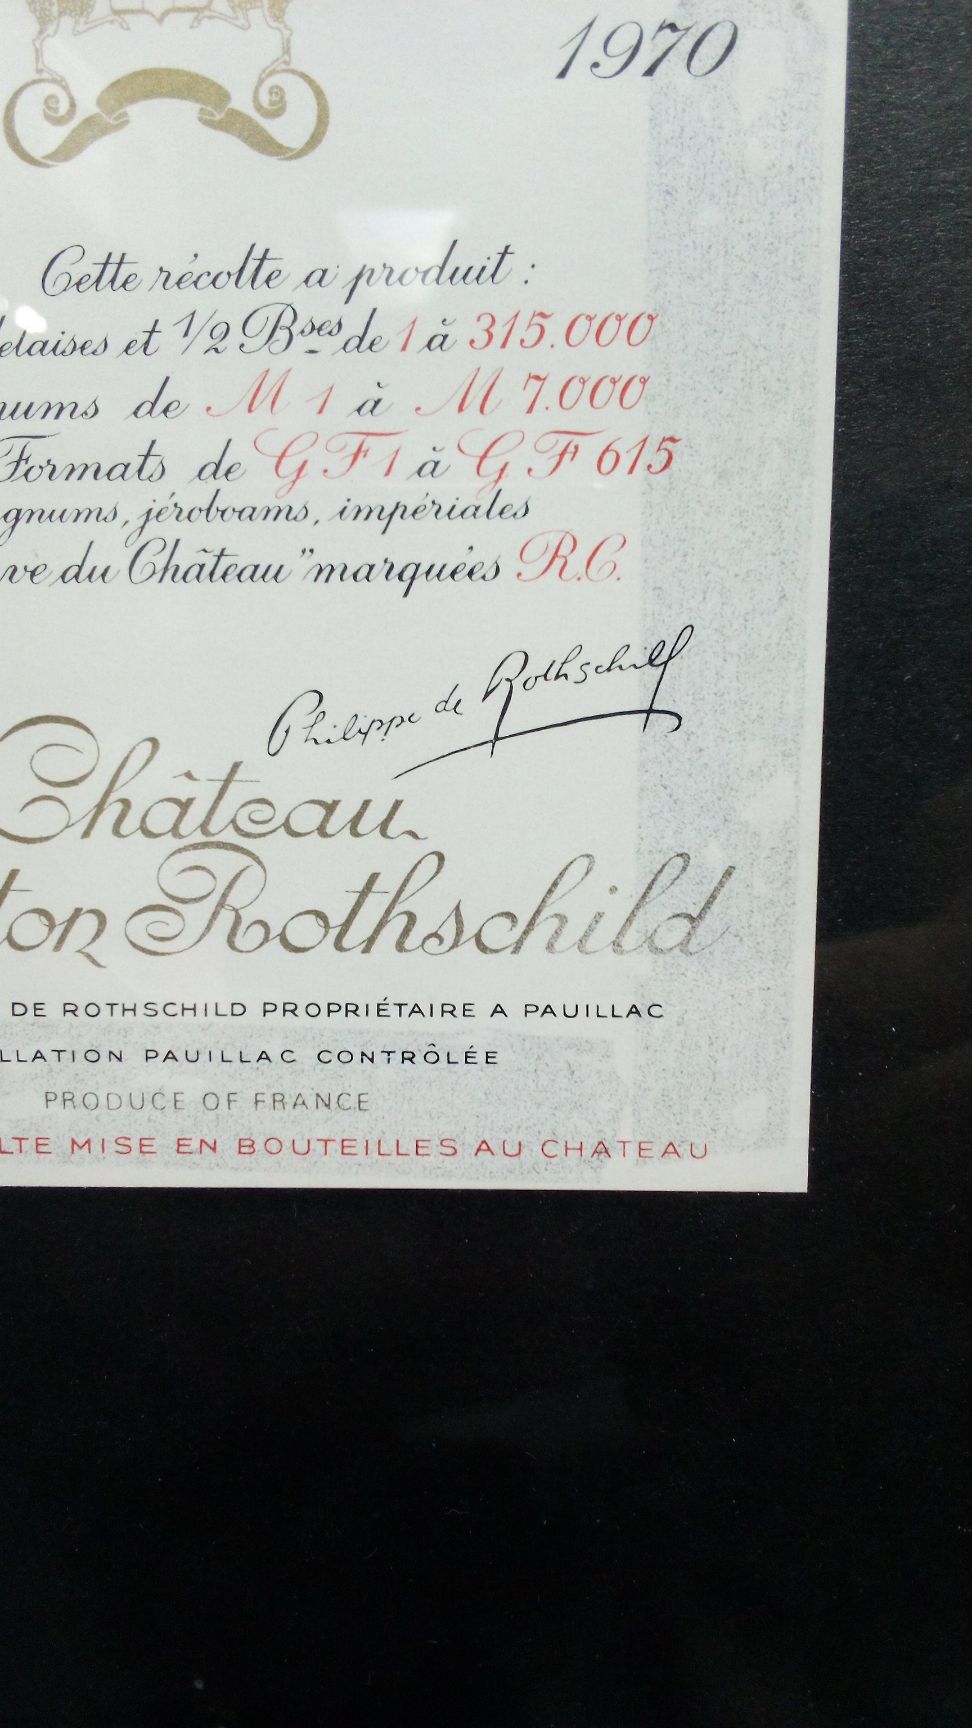 1970
Cette récolte a produit :
elaises et 1/2 Bses de 1 à 315.000
nums de M 1 à M 7.000
Formats de G F 1 à G F 615
gnums, jéroboams, impériales
ve du Château" marquées R.C.
Philippe de Rothschild
Château
ton Rothschild
DE ROTHSCHILD PROPRIÉTAIRE A PAUILLAC
LLATION PAUILLAC CONTRÔLÉE
PRODUCE OF FRANCE
LTE MISE EN BOUTEILLES AU CHATEAU